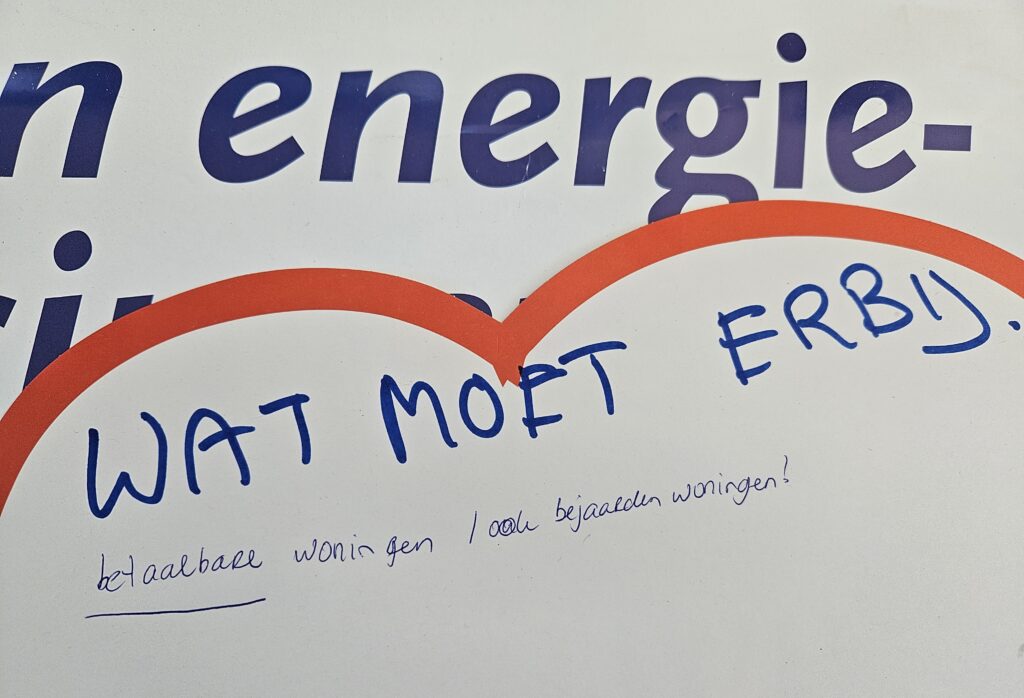 n energie-
WAT MOET ERBIJ.
betaalbare woningen / ook bejaarden woningen!